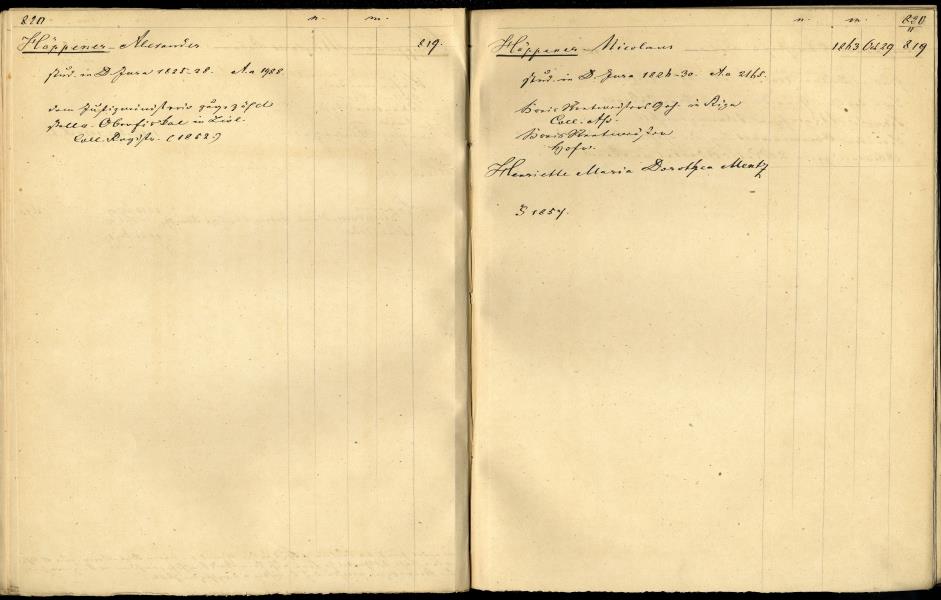 820. n. m.
Höppener - Alexander 819.
stud. in D. Jura 1825-28. A.a 1988.
dem Justizministerio zugezählt
stellv. Oberfiskal in Livl.
Coll. Registr. (1852)
n. m. 820
II
Höppener - Nicolaus 1843 Oct 29 819
stud. in D. Jura 1824-30. A.a 2165.
Kreis Rentmeisters Geh. in Riga
Coll. Ass.
Kreis Rentmeister
Hofr.
Henriette Maria Dorothea Mentz
1857.